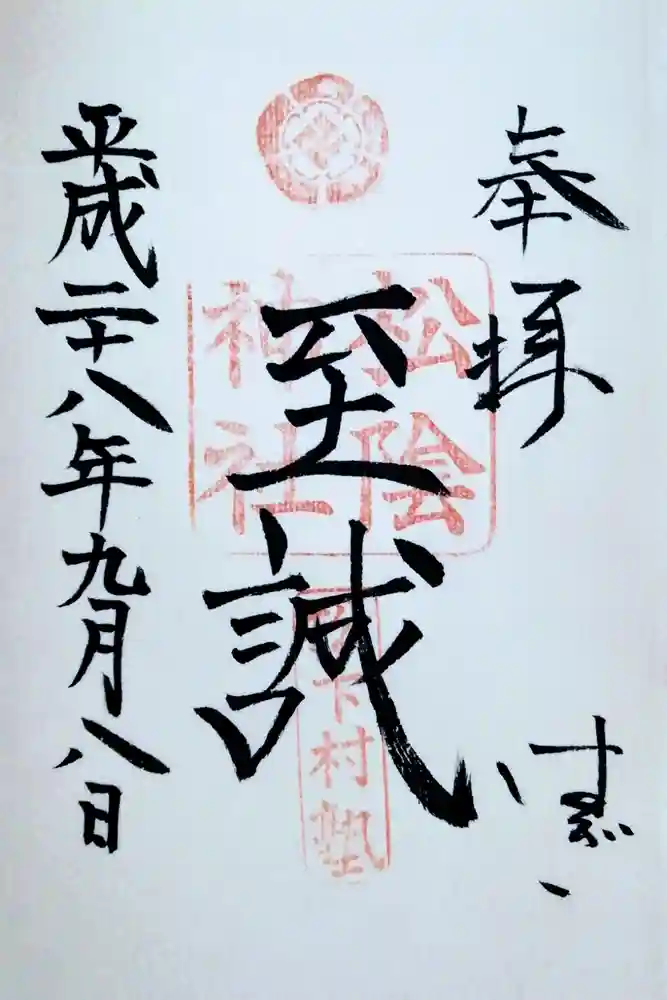 奉拝
至誠
松陰
神社
松下村塾
平成二十八年九月八日